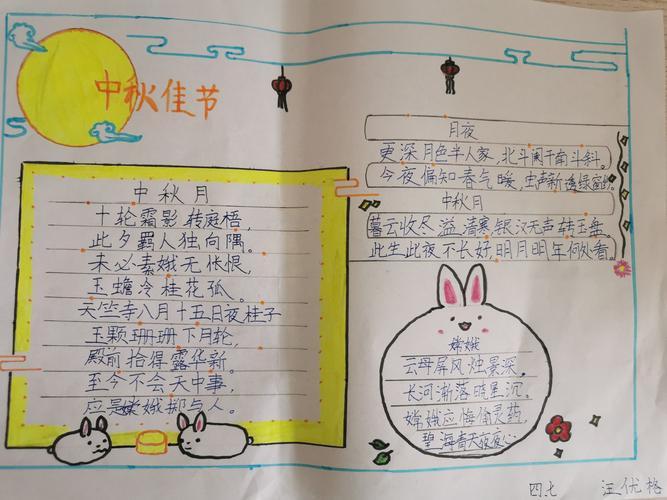 中秋佳节
中秋月
十轮霜影转庭梧，
此夕羁人独向隅。
未必素娥无怅恨，
玉蟾冷桂花孤。
天竺寺八月十五日夜桂子
玉颗珊珊下月轮，
殿前拾得露华新。
至今不会天中事，
应是嫦娥掷与人。
月夜
更深月色半人家，北斗阑干南斗斜。
今夜偏知春气暖，虫声新透绿窗纱。
中秋月
暮云收尽溢清寒，银汉无声转玉盘。
此生此夜不长好，明月明年何处看。
嫦娥
云母屏风烛景深，
长河渐落晓星沉。
嫦娥应悔偷灵药，
碧海青天夜夜心
四七 汪优格